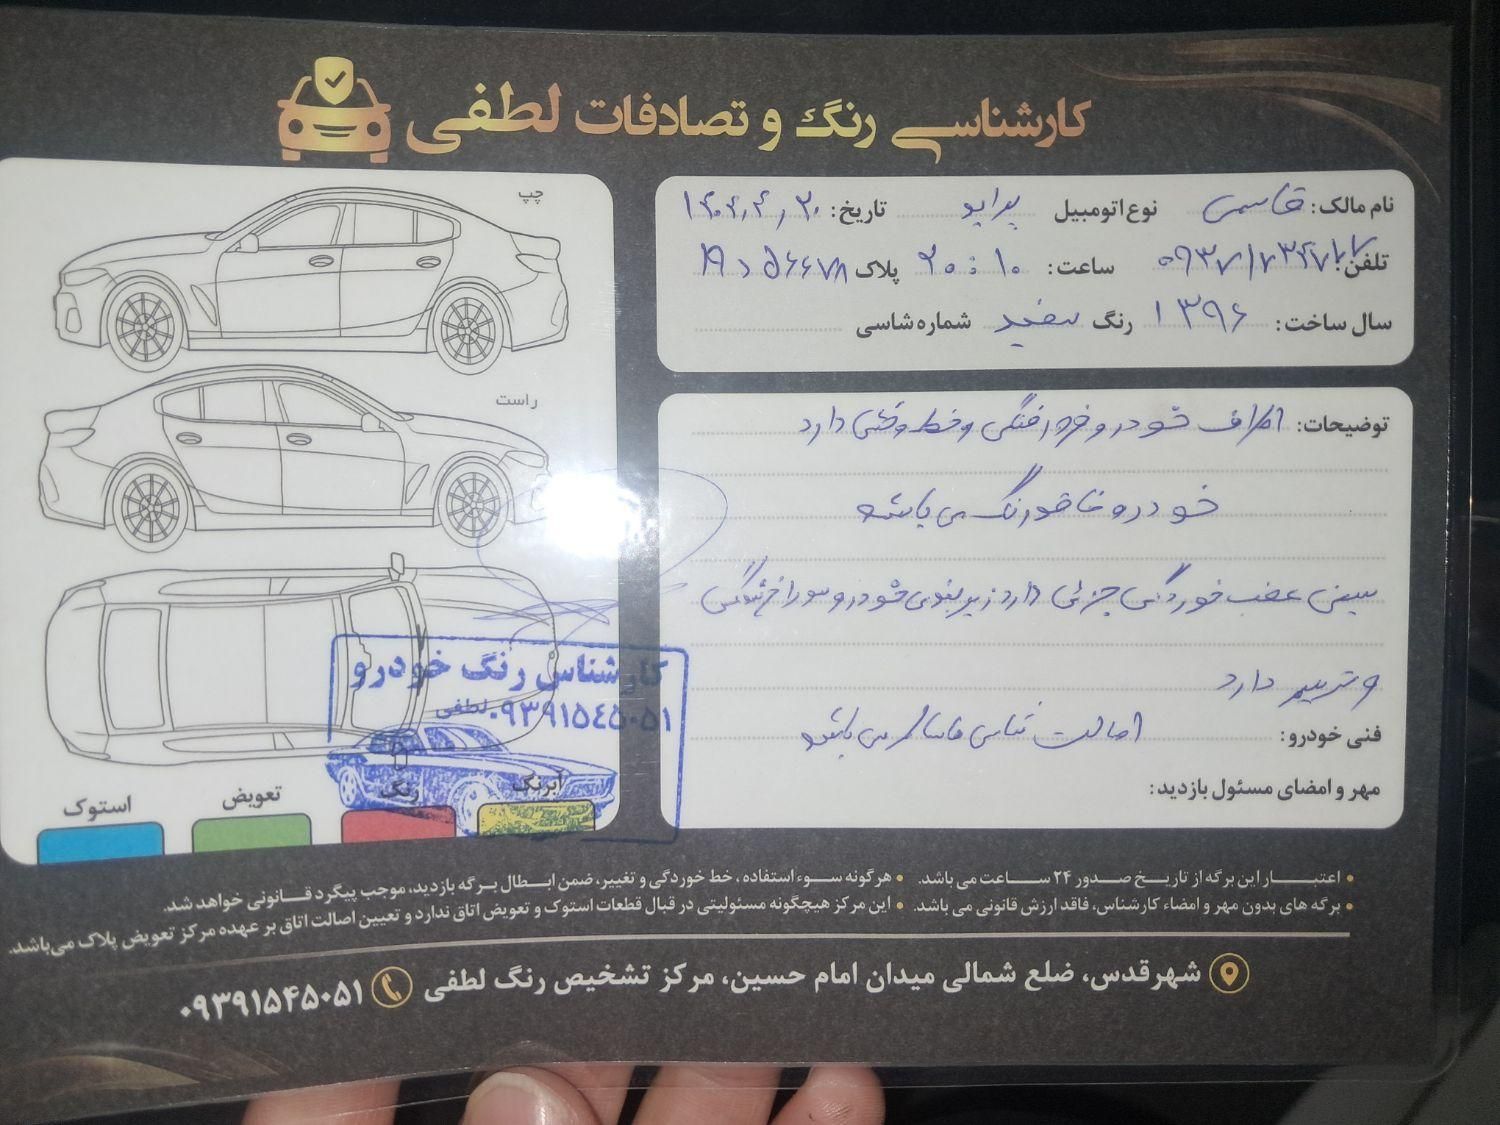 کارشناسی رنگ و تصادفات لطفی
نام مالک: قاسمی نوع اتومبیل پراید تاریخ:
تلفن: ساعت: ۲۰:۱۰ پلاک
سال ساخت: ۱۳۹۶ رنگ سفید شماره شاسی
چپ
راست
توضیحات: اطراف خودرو فرورفتگی و خط و خش دارد
خودرو فاقد رنگ می باشد
سینی عقب خوردگی جزئی دارد زیر خودرو سوراخ
و ترمیم دارد
فنی خودرو: اصالت می باشد
مهر و امضای مسئول بازدید:
کارشناس رنگ خودرو
لطفی ۰۹۳۹۱۵۴۵۰۵۱
استوک
تعویض
رنگ
آبرنگ
• اعتبار این برگه از تاریخ صدور ۲۴ ساعت می باشد.
• برگه های بدون مهر و امضاء کارشناس، فاقد ارزش قانونی می باشد.
• هرگونه سوء استفاده، خط خوردگی و تغییر، ضمن ابطال برگه بازدید، موجب پیگرد قانونی خواهد شد.
• این مرکز هیچگونه مسئولیتی در قبال قطعات استوک و تعویض اتاق ندارد و تعیین اصالت اتاق بر عهده مرکز تعویض پلاک می‌باشد.
شهرقدس، ضلع شمالی میدان امام حسین، مرکز تشخیص رنگ لطفی ۰۹۳۹۱۵۴۵۰۵۱